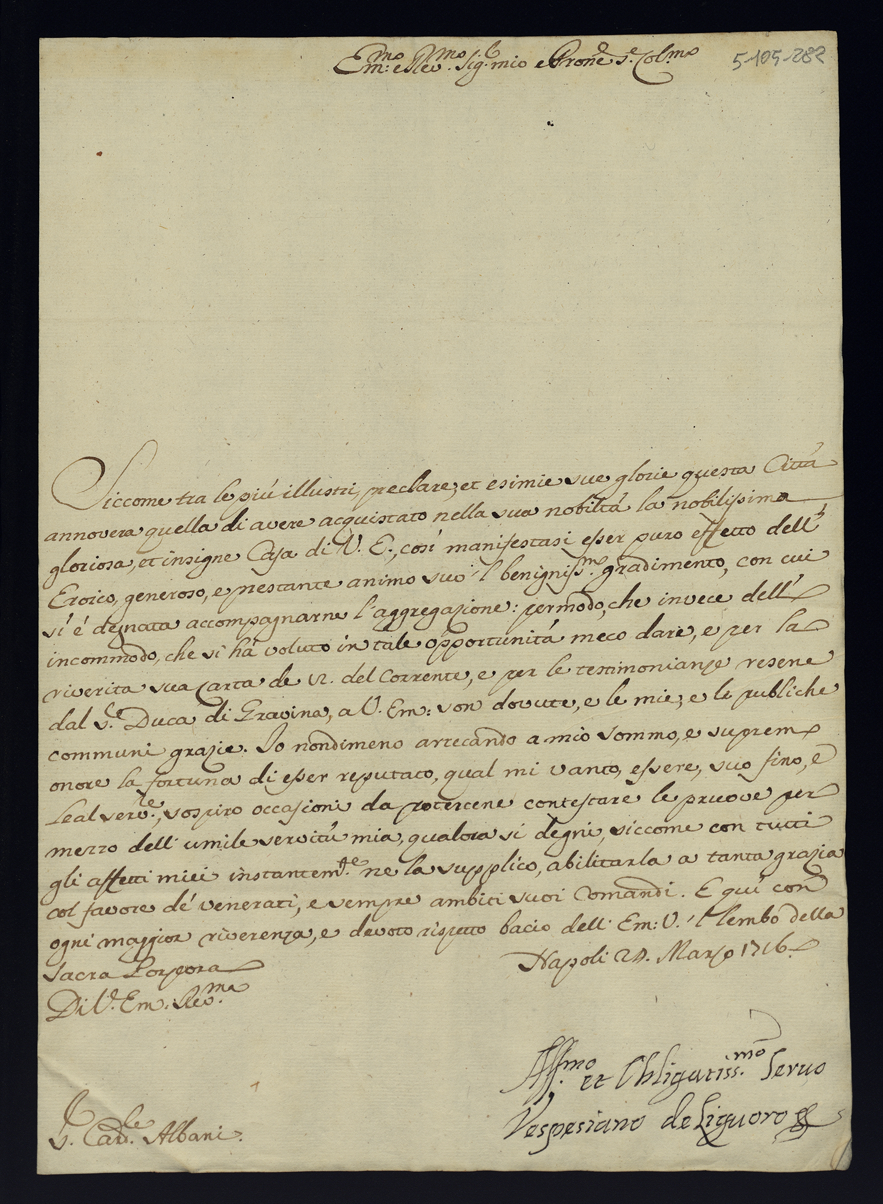 Em.mo e Rev.mo Sig.r mio e Prone S.e Col.mo
5-105-282
Siccome tra le più illustri, preclare, et esimie sue glorie questa Città
annovera quella di avere acquistato nella sua nobiltà la nobilissima
gloriosa, et insigne Casa di V. E., così manifestasi esser puro effetto dell'
Eroico, generoso, e prestante animo suo 'l benigniss.mo gradimento, con cui
si é degnata accompagnarne l'aggregazione: permodo, che invece dell'
incommodo, che si há voluto in tale opportunitá meco dare, e per la
riverita sua carta de 12. del Corrente, e per le testimonianze resene
dal S.r Duca di Gravina, a V. Em: son dovute, e le mie, e le publiche
communi grazie. Io nondimeno arrecando a mio sommo, e supremo
onore la fortuna di esser reputato, qual mi vanto, essere, suo fino, e
leal serv.le, sospiro occasioni da potercene contestare le pruove per
mezzo dell' umile servitù mia, qualora si degni, siccome con tutti
gli affetti miei instantem.te ne la supplico, abilitarla a tanta grazia
col favore de' venerati, e sempre ambiti suoi Comandi. E quì con
ogni maggior riverenza, e devoto rispetto bacio dell' Em: V. 'l lembo della
Sacra Porpora
Napoli 24. Marzo 1716.
Di V. Em. Rev.ma
Aff.mo et Obligatiss.mo Servo
Vespesiano de Liguoro
S. Card.le Albani.